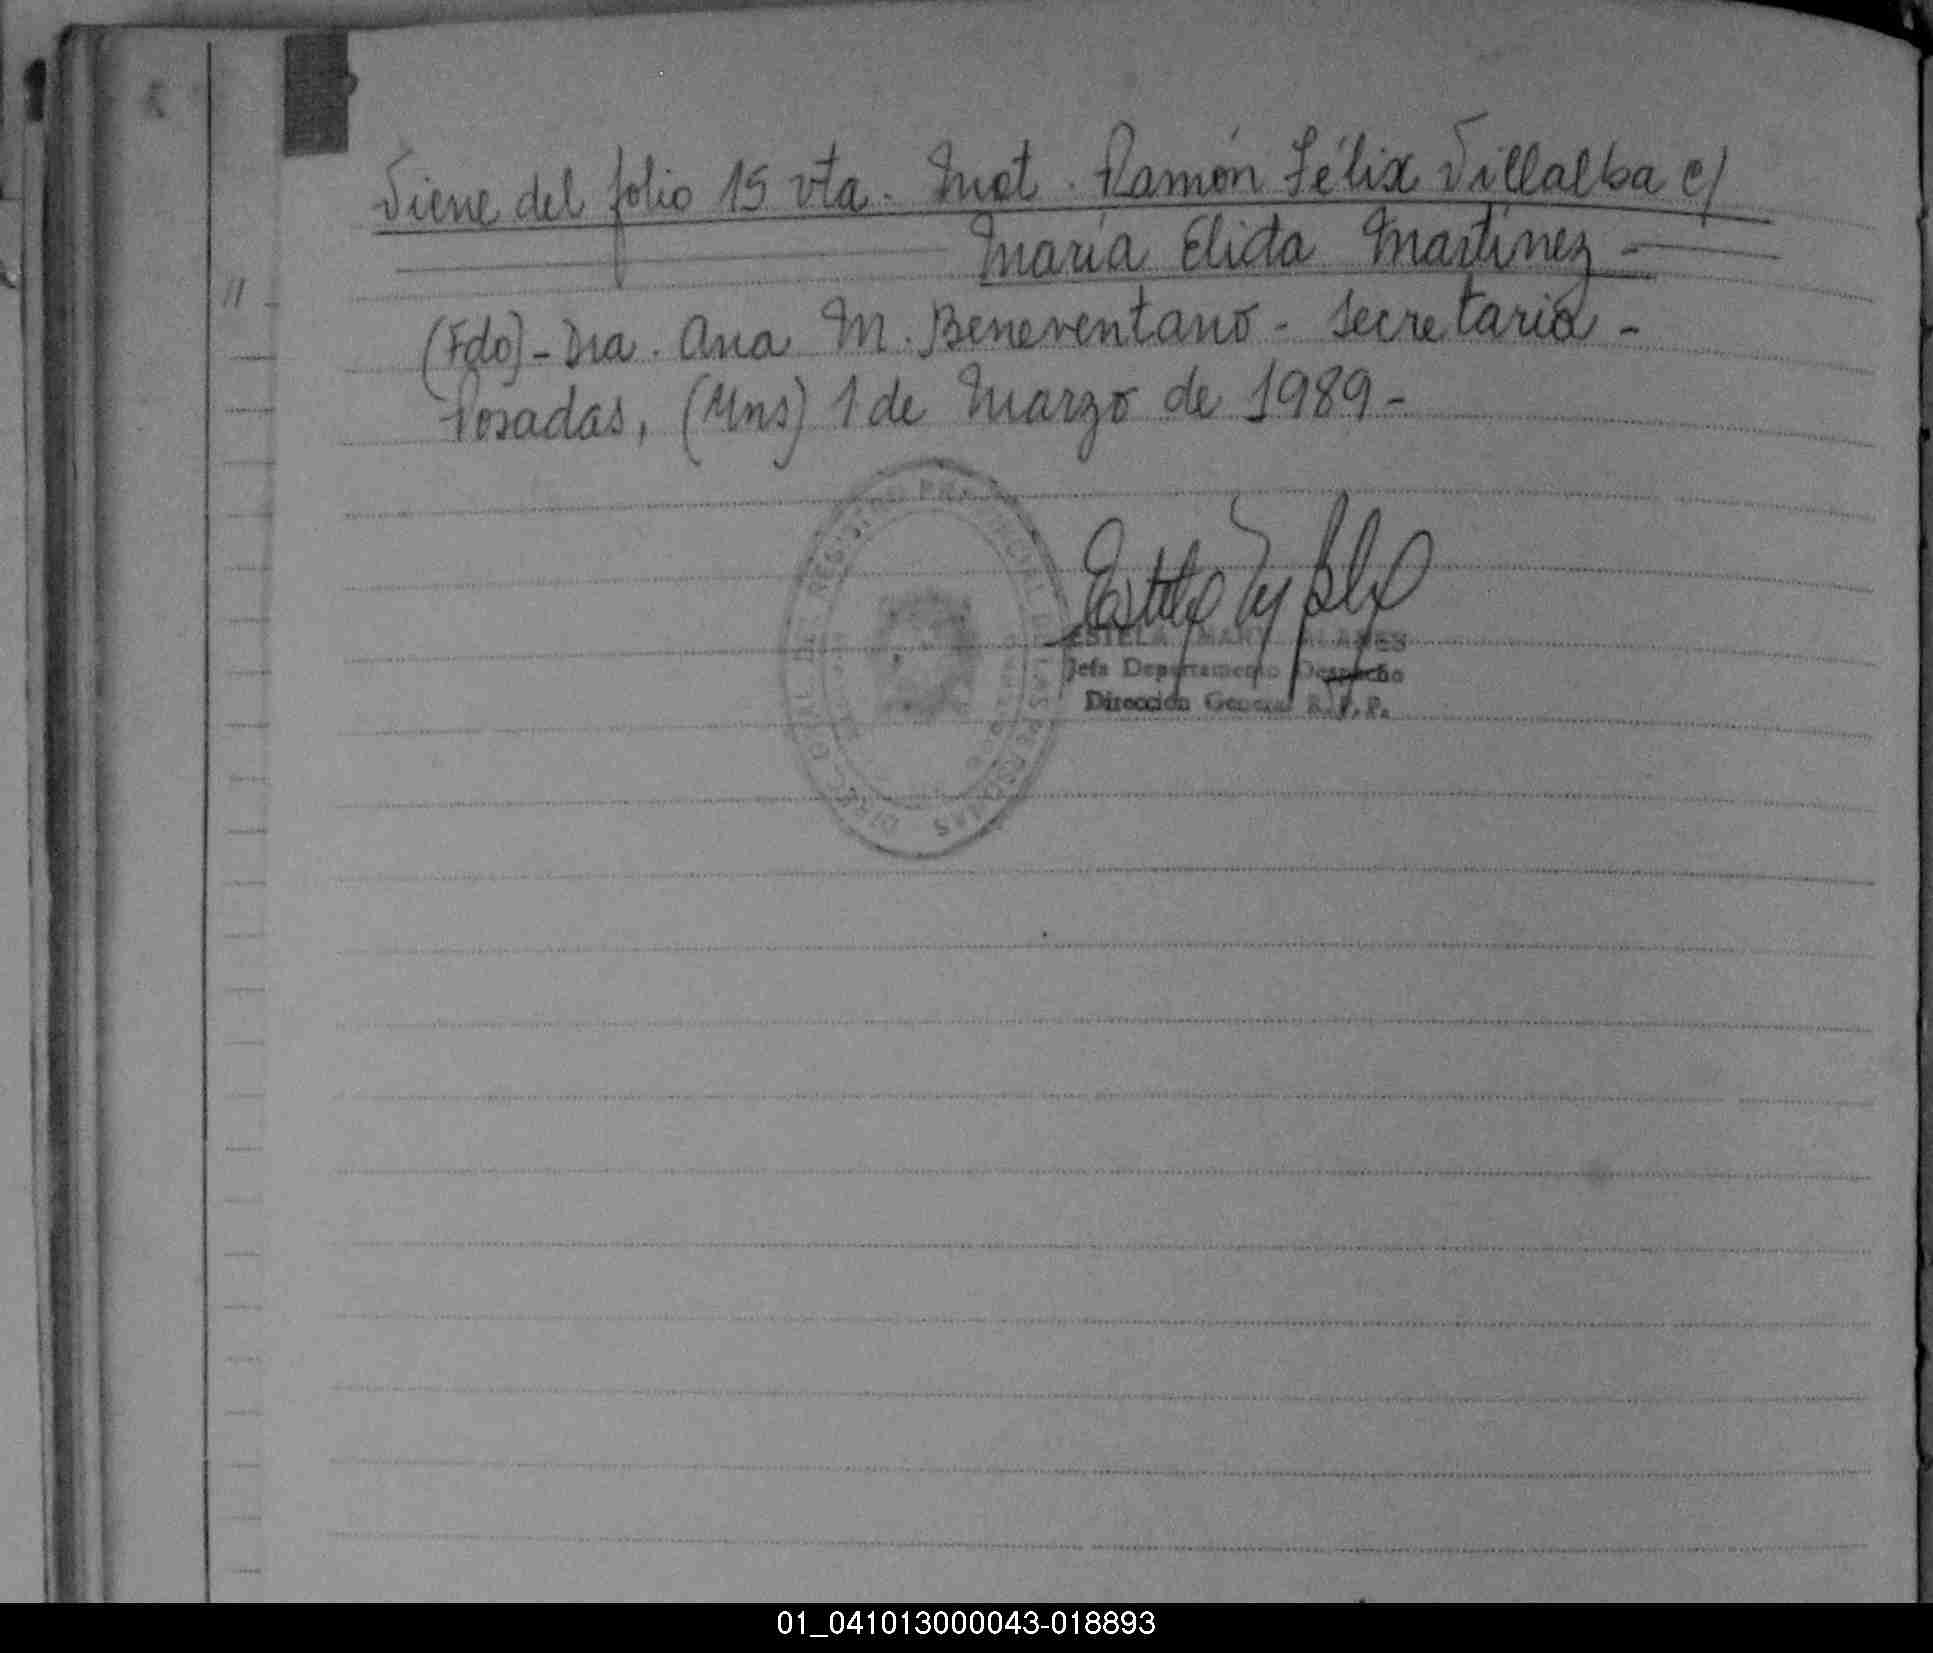 Viene del folio 15 vta. Mat. Ramón Félix Villalba c/
María Elida Martínez -
(Fdo) - Dra. Ana M. Beneventano - Secretaria -
Posadas, (Mns) 1 de Marzo de 1989 -
ESTELA MARY
Jefa Departamento Despacho
Dirección General R.P.P.
DIREC. GRAL. DE REGISTRO PROVINCIAL DE LAS PERSONAS
01_041013000043-018893